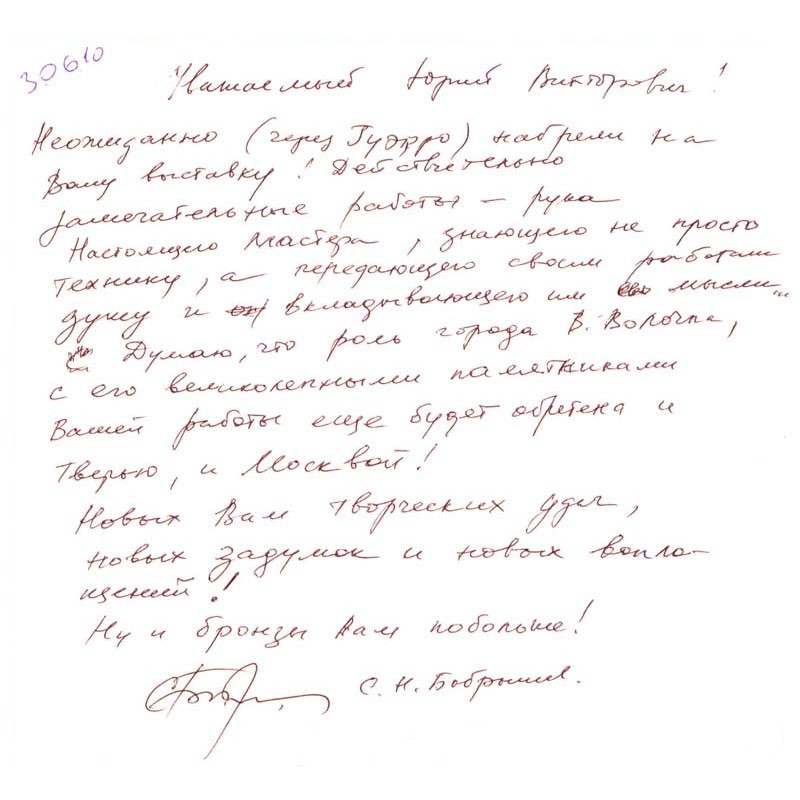 30610
Уважаемый Юрий Викторович!
Неожиданно (через Гуэрро) набрели на
Вашу выставку! Действительно
замечательные работы – рука
Настоящего Мастера, знающего не просто
технику, а передающего своим работами
душу и вкладывающего им мысли...
Думаю, что роль города В. Волочка,
с его великолепными памятниками
Вашей работы еще будет обретена и
Тверью, и Москвой!
Новых Вам творческих удач,
новых задумок и новых вопло-
щений!
Ну и бронзы Вам побольше!
С. Н. Бобрышев.